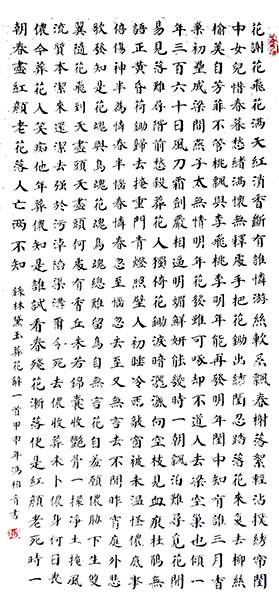 花謝花飛花滿天紅消香斷有誰憐游絲軟系飄春榭落絮輕沾撲綉帘閨
中女兒惜春暮愁緒滿懷無釋處手把花鋤出綉閨忍踏落花來复去柳絲
榆莢自芳菲不管桃飄與李飛桃李明年能再發明年閨中知有誰三月香
巢初壘成梁間燕子太無情明年花發雖可啄却不道人去梁空巢也傾一
年三百六十日風刀霜劍嚴相逼明媚鮮妍能幾時一朝飄泊難尋覓花開
易見落難尋階前愁殺葬花人獨倚花鋤淚暗灑灑向空枝見血痕杜鵑無
語正黃昏荷鋤歸去掩重門青燈照壁人初睡冷雨敲窗被未溫怪儂底事
倍傷神半為憐春半惱春憐春忽至惱忽去至又無言去不聞昨宵庭外悲
歌發知是花魂與鳥魂花魂鳥魂總難留鳥自無言花自羞願儂脅下生雙
翼隨花飛到天盡頭天盡頭何處有香丘未若錦囊收艷骨一抔淨土掩風
流質本潔來還潔去強於污淖陷渠溝爾今死去儂收葬未卜儂身何日喪
儂今葬花人笑痴他年葬儂知是誰試看春殘花漸落便是紅顏老死時一
朝春盡紅顏老花落人亡兩不知 錄林黛玉葬花辭一首甲申年馮柏青書